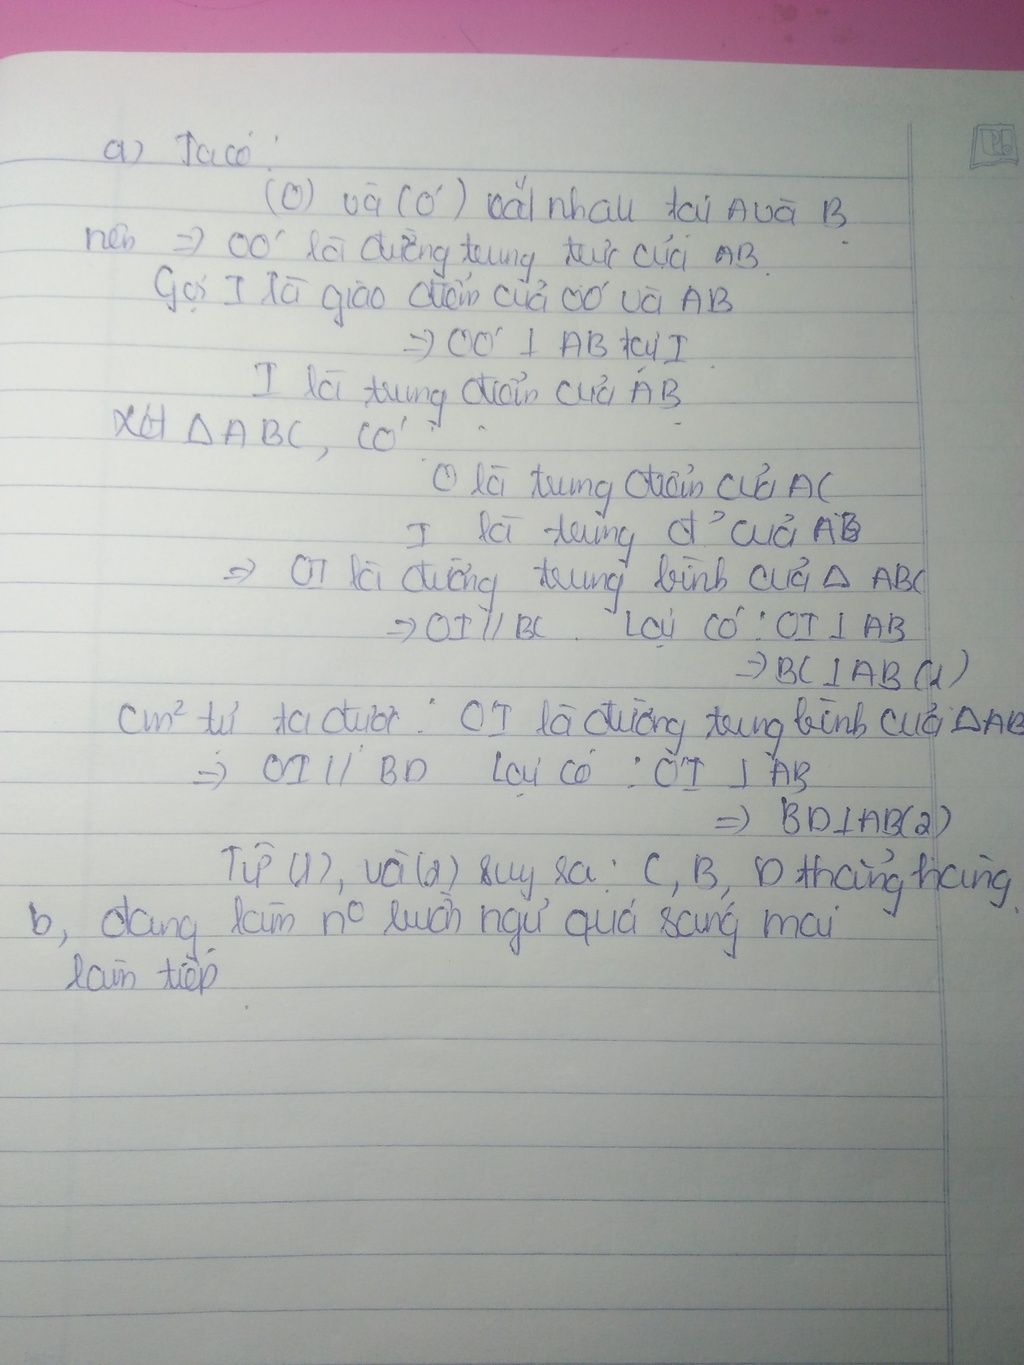 a) Ta có :
(O) và (O') cắt nhau tại A và B
nên => OO' là đường trung trực của AB.
Gọi I là giao điểm của OO' và AB
=> OO' ⊥ AB tại I
I là trung điểm của AB
Xét △ABC, có :
O là trung điểm của AC
I là trung đ' của AB
=> OI là đường trung bình của △ ABC
=> OI // BC . Lại có : OI ⊥ AB
=> BC ⊥ AB (1)
Cm² tự ta được : O'I là đường trung bình của △AB
=> O'I // BD Lại có : O'I ⊥ AB
=> BD ⊥ AB (2)
Từ (1), và (2) suy ra : C, B, D thẳng hàng.
b, đang làm n° buồn ngủ quá sáng mai
làm tiếp